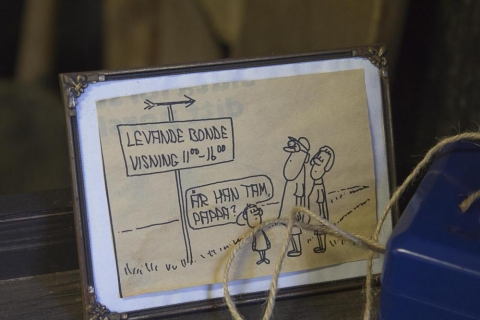 LEVANDE BONDE
VISNING 11⁰⁰-16⁰⁰
ÄR HAN TAM,
PAPPA?